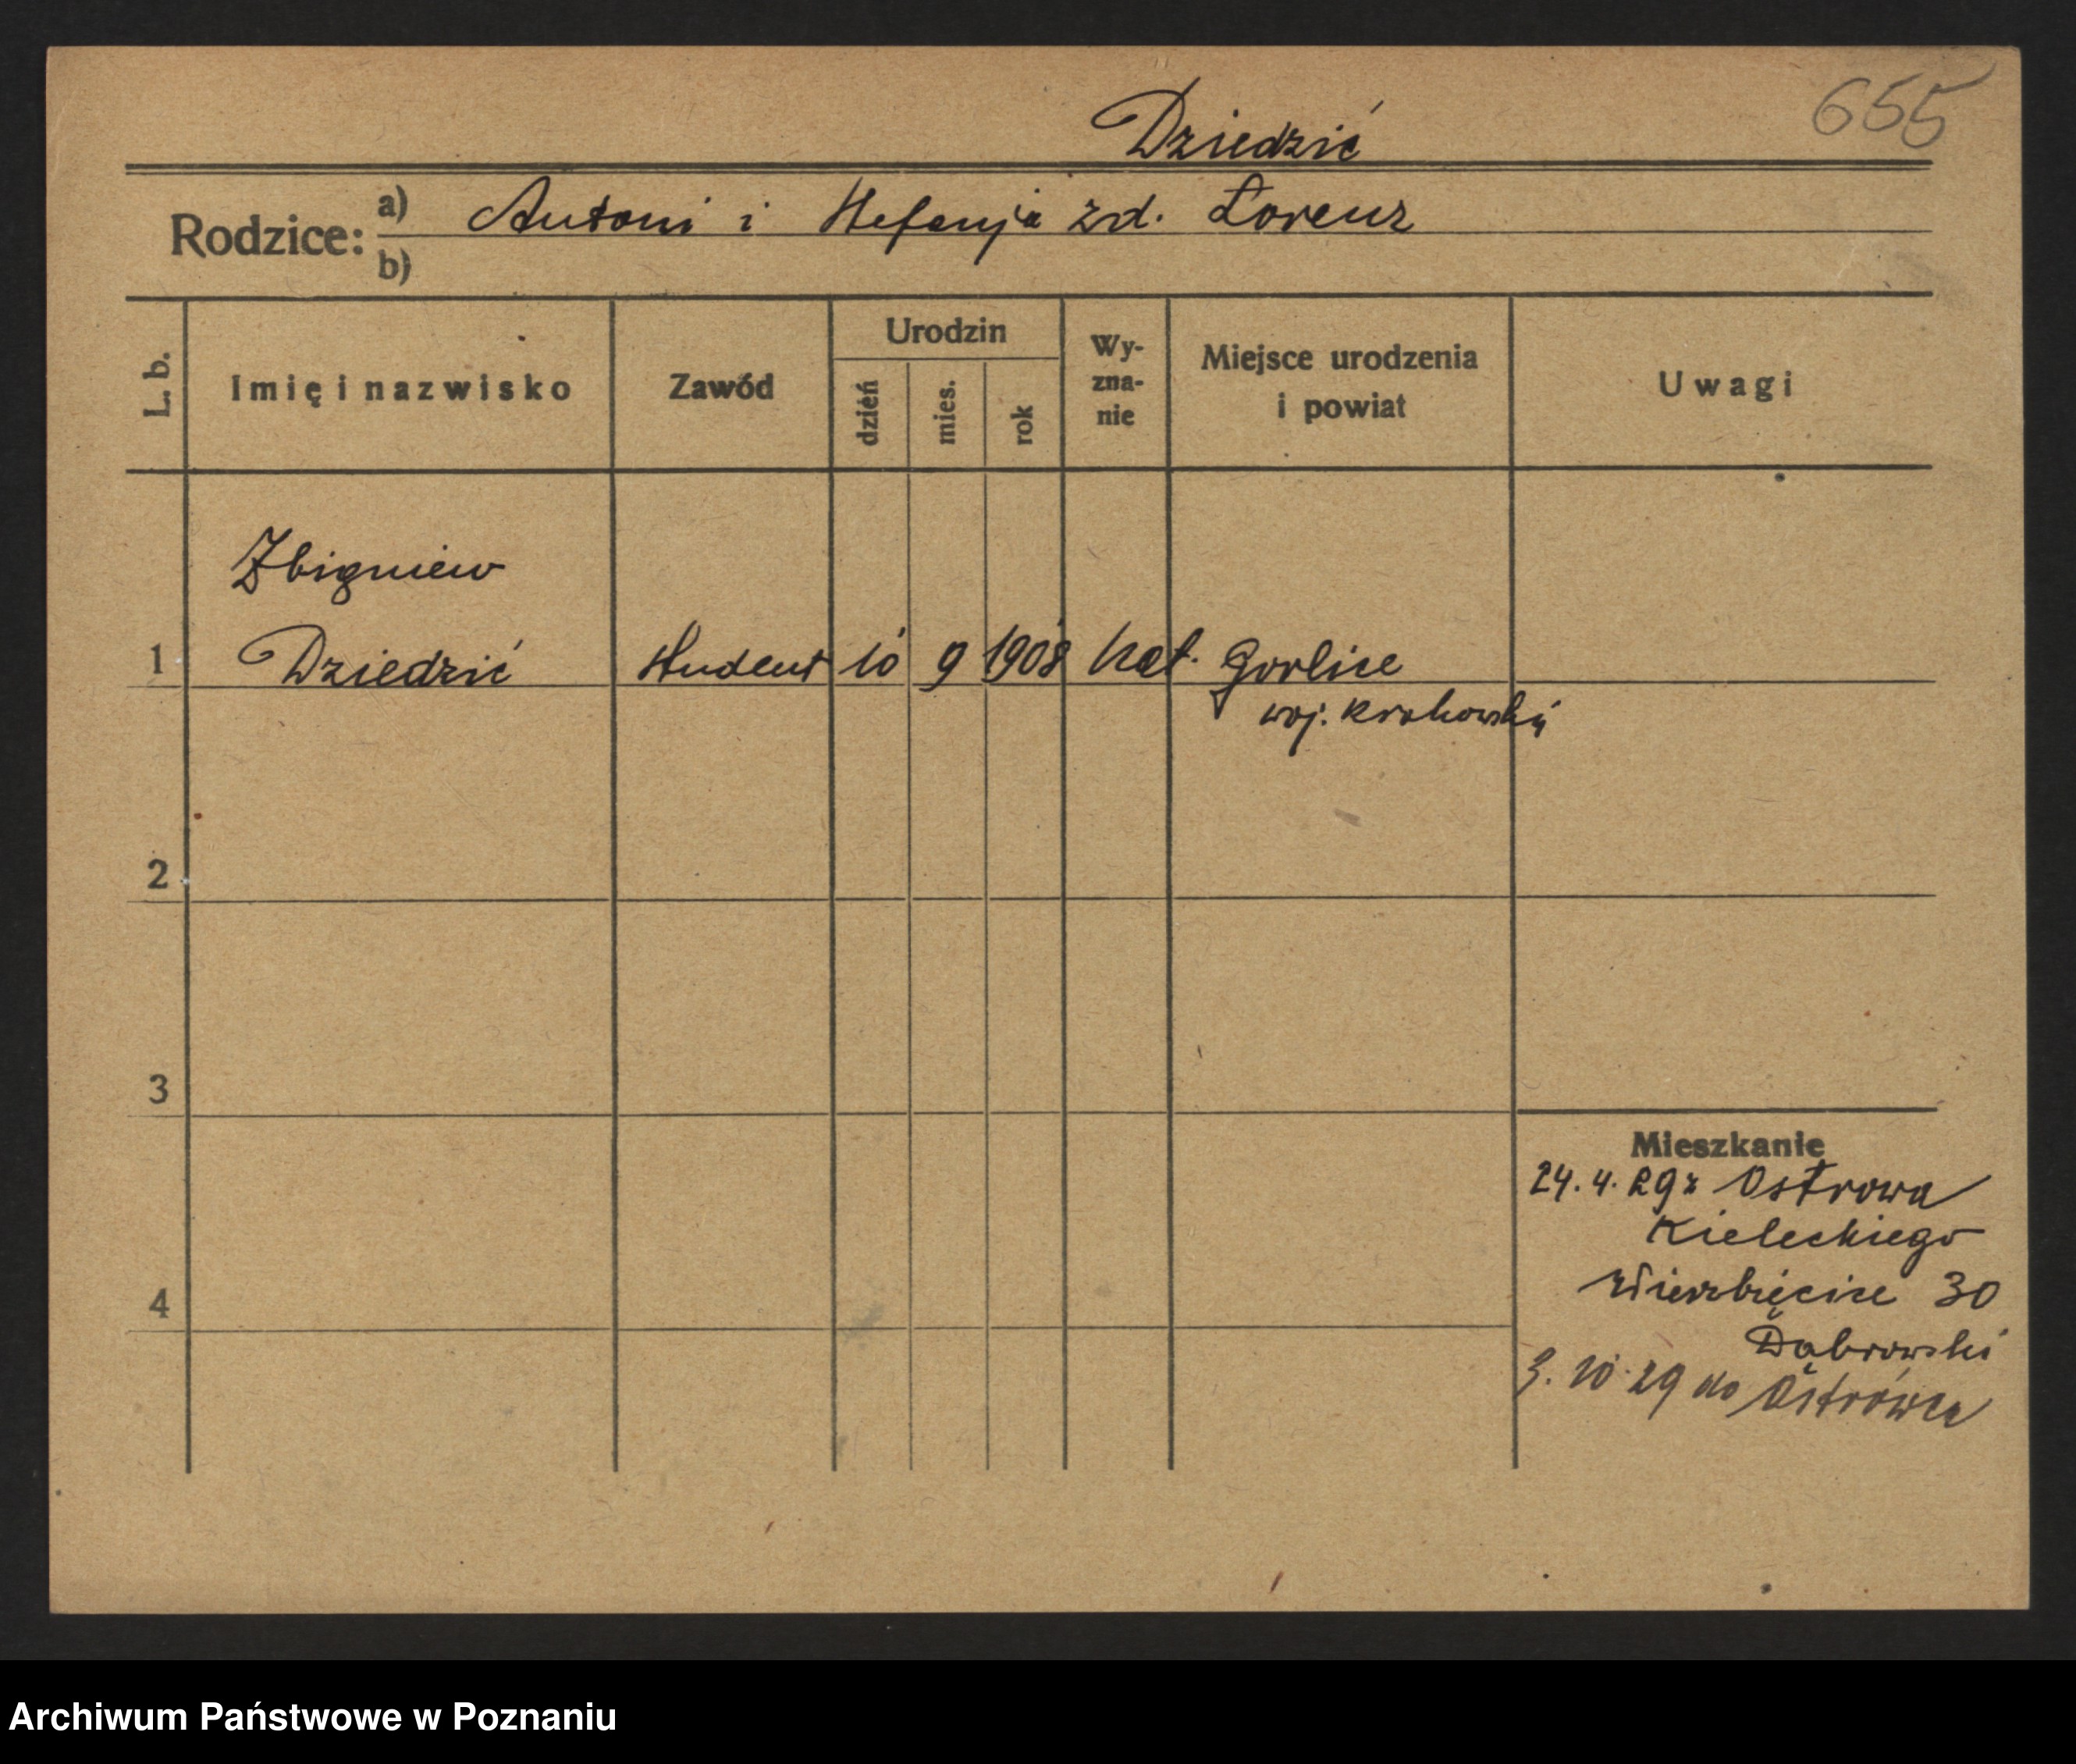 655
Dziedzić
Rodzice: a) Antoni i Stefanja zd. Lorenz
b)
L. b. Imię i nazwisko Zawód Urodzin dzień mies. rok Wy-zna-nie Miejsce urodzenia i powiat Uwagi
Zbigniew
1 Dziedzić student 10 9 1908 kat. Gorlice
woj. krakowski
2
3
Mieszkanie
24.4.29 z Ostrowa
Kieleckiego
4 Wierzbięcice 30
Dąbrowski
3.10.29 do Ostrówca
Archiwum Państwowe w Poznaniu